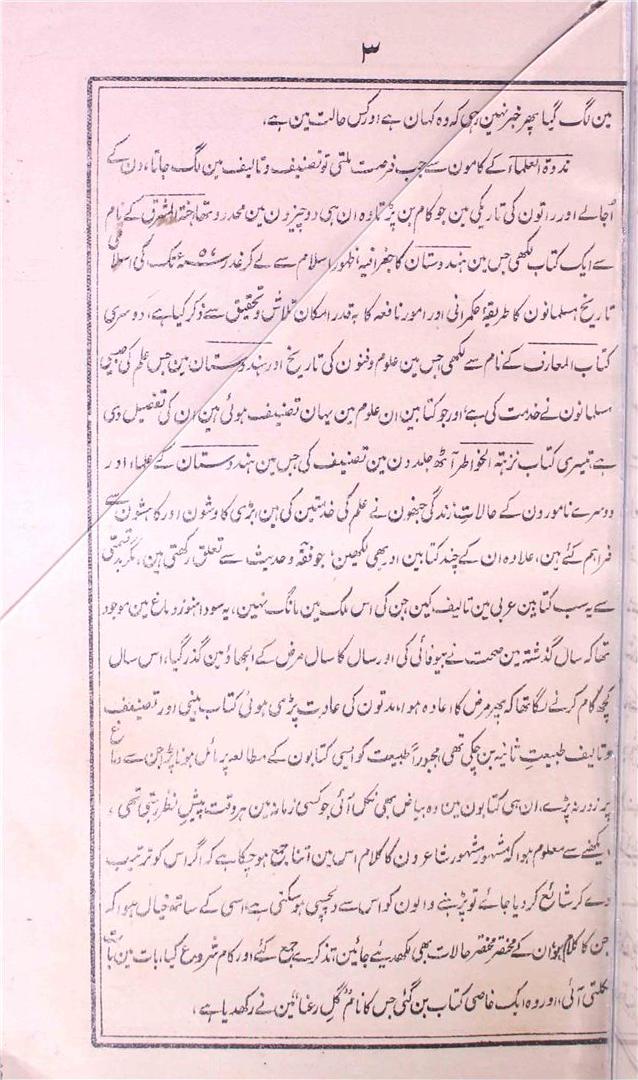 ۳
مین لگ گیا پھر خبر نہین رہی کہ وہ کہان ہے اور کس حالت مین ہے،
ندوۃ العلماء کے کامون سے جب فرصت ملتی تو تصنیف و تالیف مین لگ جاتا، دن کے
اُجالے اور راتون کی تاریکی مین جو کام بن پڑتا وہ ان ہی دو چیزون مین محدود تھا جنۃ المشرق کے نام
سے ایک کتاب لکھی جس مین ہندوستان کا جغرافیہ، ظہور اسلام سے لے کر غدر ۵۷ء تک کی اسلامی
تاریخ مسلمانون کا طریقۂ حکمرانی اور امور نافعہ کا بہ قدر امکان تلاش و تحقیق سے ذکر کیا ہے، دوسری
کتاب المعارف کے نام سے لکھی جس مین علوم و فنون کی تاریخ اور ہندوستان مین جس علم کی جیسی
مسلمانون نے خدمت کی ہے اور جو کتابین ان علوم مین یہان تصنیف ہوئی ہین ان کی تفصیل دی
ہے، تیسری کتاب نزہتہ الخواطر آٹھ جلدون مین تصنیف کی جس مین ہندوستان کے علماء اور
دوسرے نامورون کے حالات زندگی جنھون نے علم کی خدمتین کی ہین بڑی کاوشون اور کاہشون سے
فراہم کئے ہین، علاوہ ان کے چند کتابین اور بھی لکھین جو فقہ و حدیث سے تعلق رکھتی ہین، مگر بدقسمتی
سے یہ سب کتابین عربی مین تالیف کین جن کی اس ملک مین مانگ نہین، یہ سودا ہنوز دماغ مین موجود
تھا کہ سال گذشتہ مین صحت نے بیوفائی کی اور سال کا سال مرض کے الجھاؤ مین گذر گیا، اس سال
کچھ کام کرنے لگا تھا کہ پھر مرض کا اعادہ ہوا، مدتون کی عادت پڑی ہوئی کتاب بینی اور تصنیف
و تالیف طبیعت ثانیہ بن چکی تھی، مجبوراً طبیعت کو ایسی کتابون کے مطالعہ پر مائل ہونا پڑا جن سے دماغ
پر زور نہ پڑے، ان ہی کتابون مین وہ بیاض بھی نکل آئی جو کسی زمانہ مین ہر وقت پیش نظر رہتی تھی،
دیکھنے سے معلوم ہوا کہ مشہور مشہور شاعرون کا کلام اس مین اتنا جمع ہو چکا ہے کہ اگر اس کو ترتیب
دے کر شائع کر دیا جائے تو پڑھنے والون کو اس سے دلچسپی ہو سکتی ہے، اسی کے ساتھ خیال ہوا کہ
جن کا کلام ہو ان کے مختصر مختصر حالات بھی لکھدیئے جائین، تذکرے جمع کئے اور کام شروع کیا، بات مین بات
نکلتی آئی، اور وہ ایک خاصی کتاب بن گئی جس کا نام گل رعنا مین نے رکھدیا ہے،